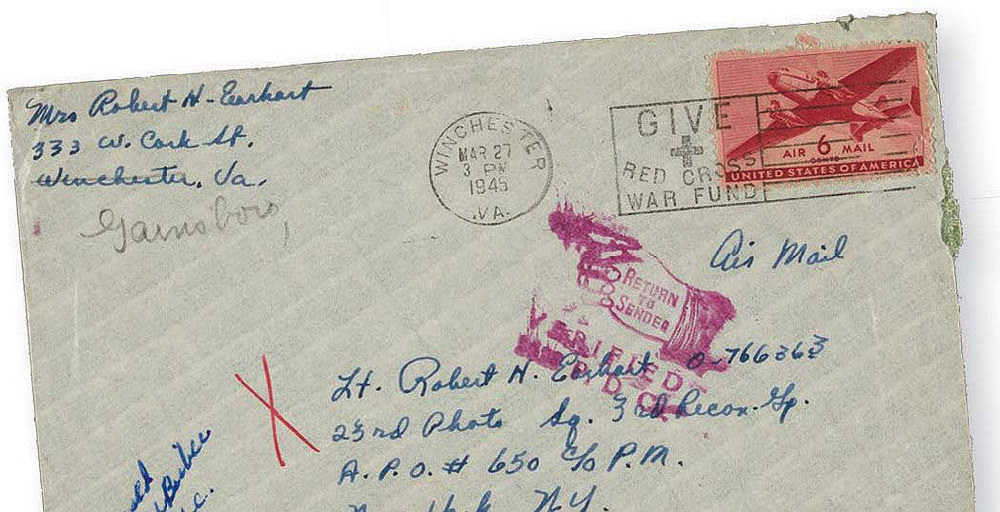 Mrs Robert H. Earhart
333 W. Cork St.
Winchester, Va.
Gainsboro,
WINCHESTER
MAR 27
3 PM
1945
VA.
GIVE
RED CROSS
WAR FUND
AIR 6 MAIL
CENTS
UNITED STATES OF AMERICA
Air Mail
RETURN
TO
SENDER
VERIFIED
Lt. Robert H. Earhart O-766363
23rd Photo Sq. 3rd Recon. Gp.
A.P.O. # 650 C/o P.M.
N.Y.